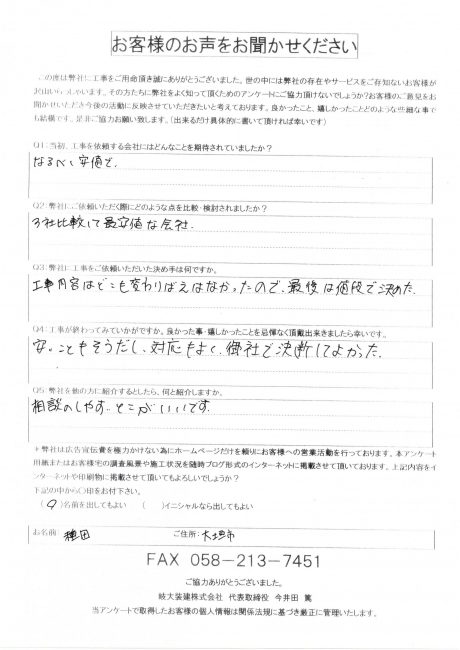 お客様のお声をお聞かせください
この度は弊社に工事をご用命頂き誠にありがとうございました。世の中には弊社の存在やサービスをご存知ないお客様が
沢山いらっしゃいます。その方たちに弊社をよく知って頂くためのアンケートにご協力頂けないでしょうか?お客様のご意見をお
聞かせいただき今後の活動に反映させていただきたいと考えております。良かったこと、嬉しかったことどのような些細な事で
も結構です。是非ご協力お願い致します。(出来るだけ具体的に書いて頂ければ幸いです)
Q1:当初、工事を依頼する会社にはどんなことを期待されていましたか?
なるべく安値で。
Q2:弊社にご依頼いただく際にどのような点を比較・検討されましたか?
3社比較して最安値な会社。
Q3:弊社に工事をご依頼いただいた決め手は何ですか。
工事内容はどこも変わりばえはなかったので、最後は値段で決めた。
Q4:工事が終わってみていかがですか。良かった事・嬉しかったことを忌憚なく頂戴出来きましたら幸いです。
安いこともそうだし、対応もよく、御社で決断してよかった。
Q5:弊社を他の方に紹介するとしたら、何と紹介しますか。
相談のしやすいとこがいいです。
*弊社は広告宣伝費を極力かけない為にホームページだけを頼りにお客様への営業活動を行っております。本アンケート
用紙またはお客様宅の調査風景や施工状況を随時ブログ形式のインターネットに掲載させて頂いております。上記内容をイ
ンターネットや印刷物に掲載させて頂いてもよろしいでしょうか?
下記の中から〇印をお付下さい。
( )名前を出してもよい ( )イニシャルなら出してもよい
お名前: 種田 ご住所: 大垣市
FAX 058-213-7451
ご協力ありがとうございました。
岐大装建株式会社 代表取締役 今井田 篤
当アンケートで取得したお客様の個人情報は関係法規に基づき厳正に管理いたします。